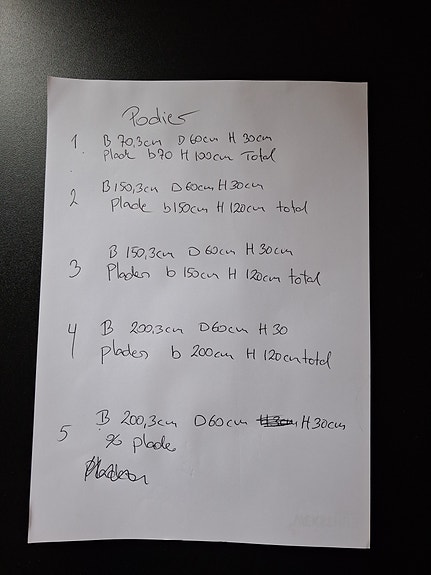 Podier
1 B 70,3cm D 60cm H 30cm
Plade b70 H 100cm Total
2 B 150,3cm D 60cm H 30cm
Plade b 150cm H 120cm total
3 B 150,3cm D 60cm H 30cm
Pladen b 150cm H 120cm total
4 B 200,3cm D 60cm H 30
pladen b 200cm H 120cm total
5 B 200,3cm D 60cm H 30cm
% plade